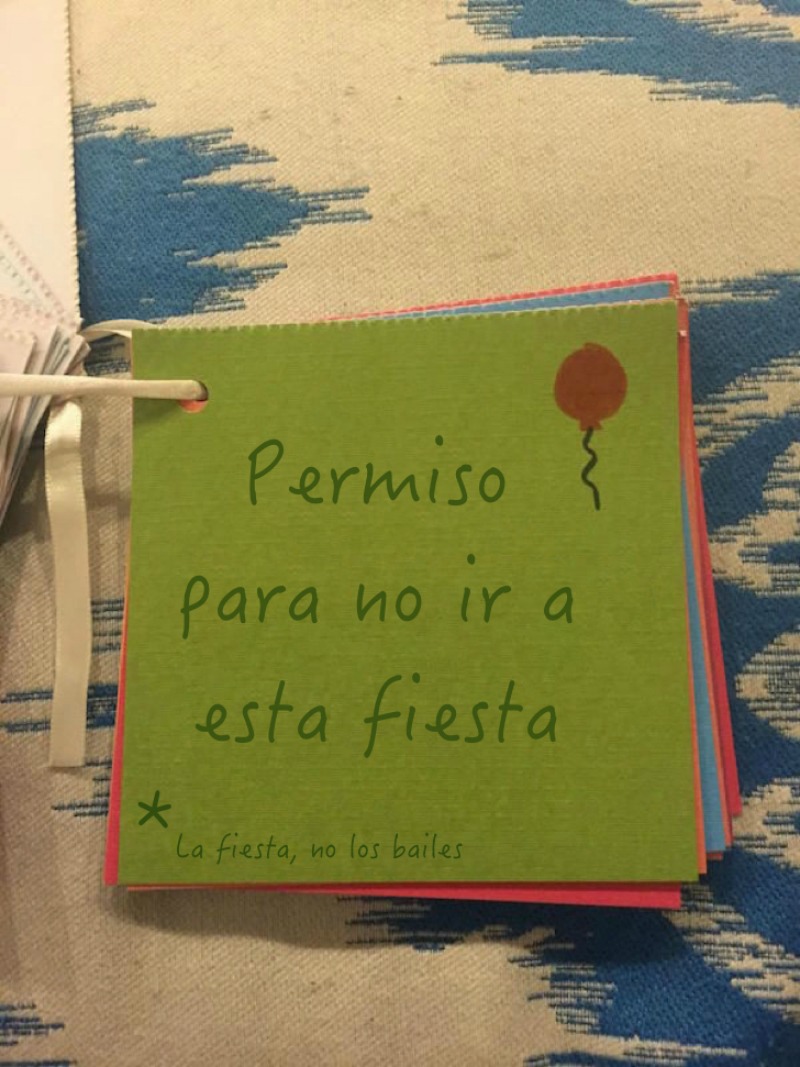 Permiso
para no ir a
esta fiesta
*
La fiesta, no los bailes